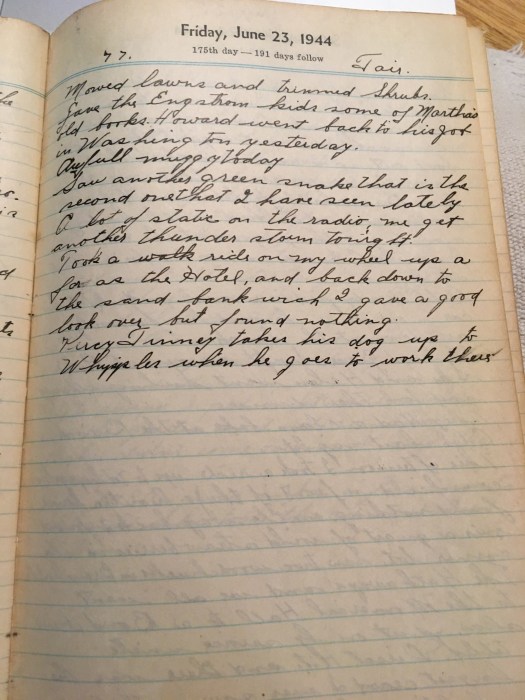 Friday, June 23, 1944
175th day — 191 days follow
77.
Fair.
Mowed lawns and trimmed Shrubs.
Gave the Engstrom kids some of Martha's
old books. Howard went back to his job
in Washington yesterday.
Awfull muggy today
Saw another green snake that is the
second one that I have seen lately
A lot of static on the radio, me get
another thunder storm tonight.
Took a walk ride on my wheel up a
far as the Hotel, and back down to
the sand bank wich I gave a good
look over but found nothing.
Tinney takes his dog up to
Whipples when he goes to work there